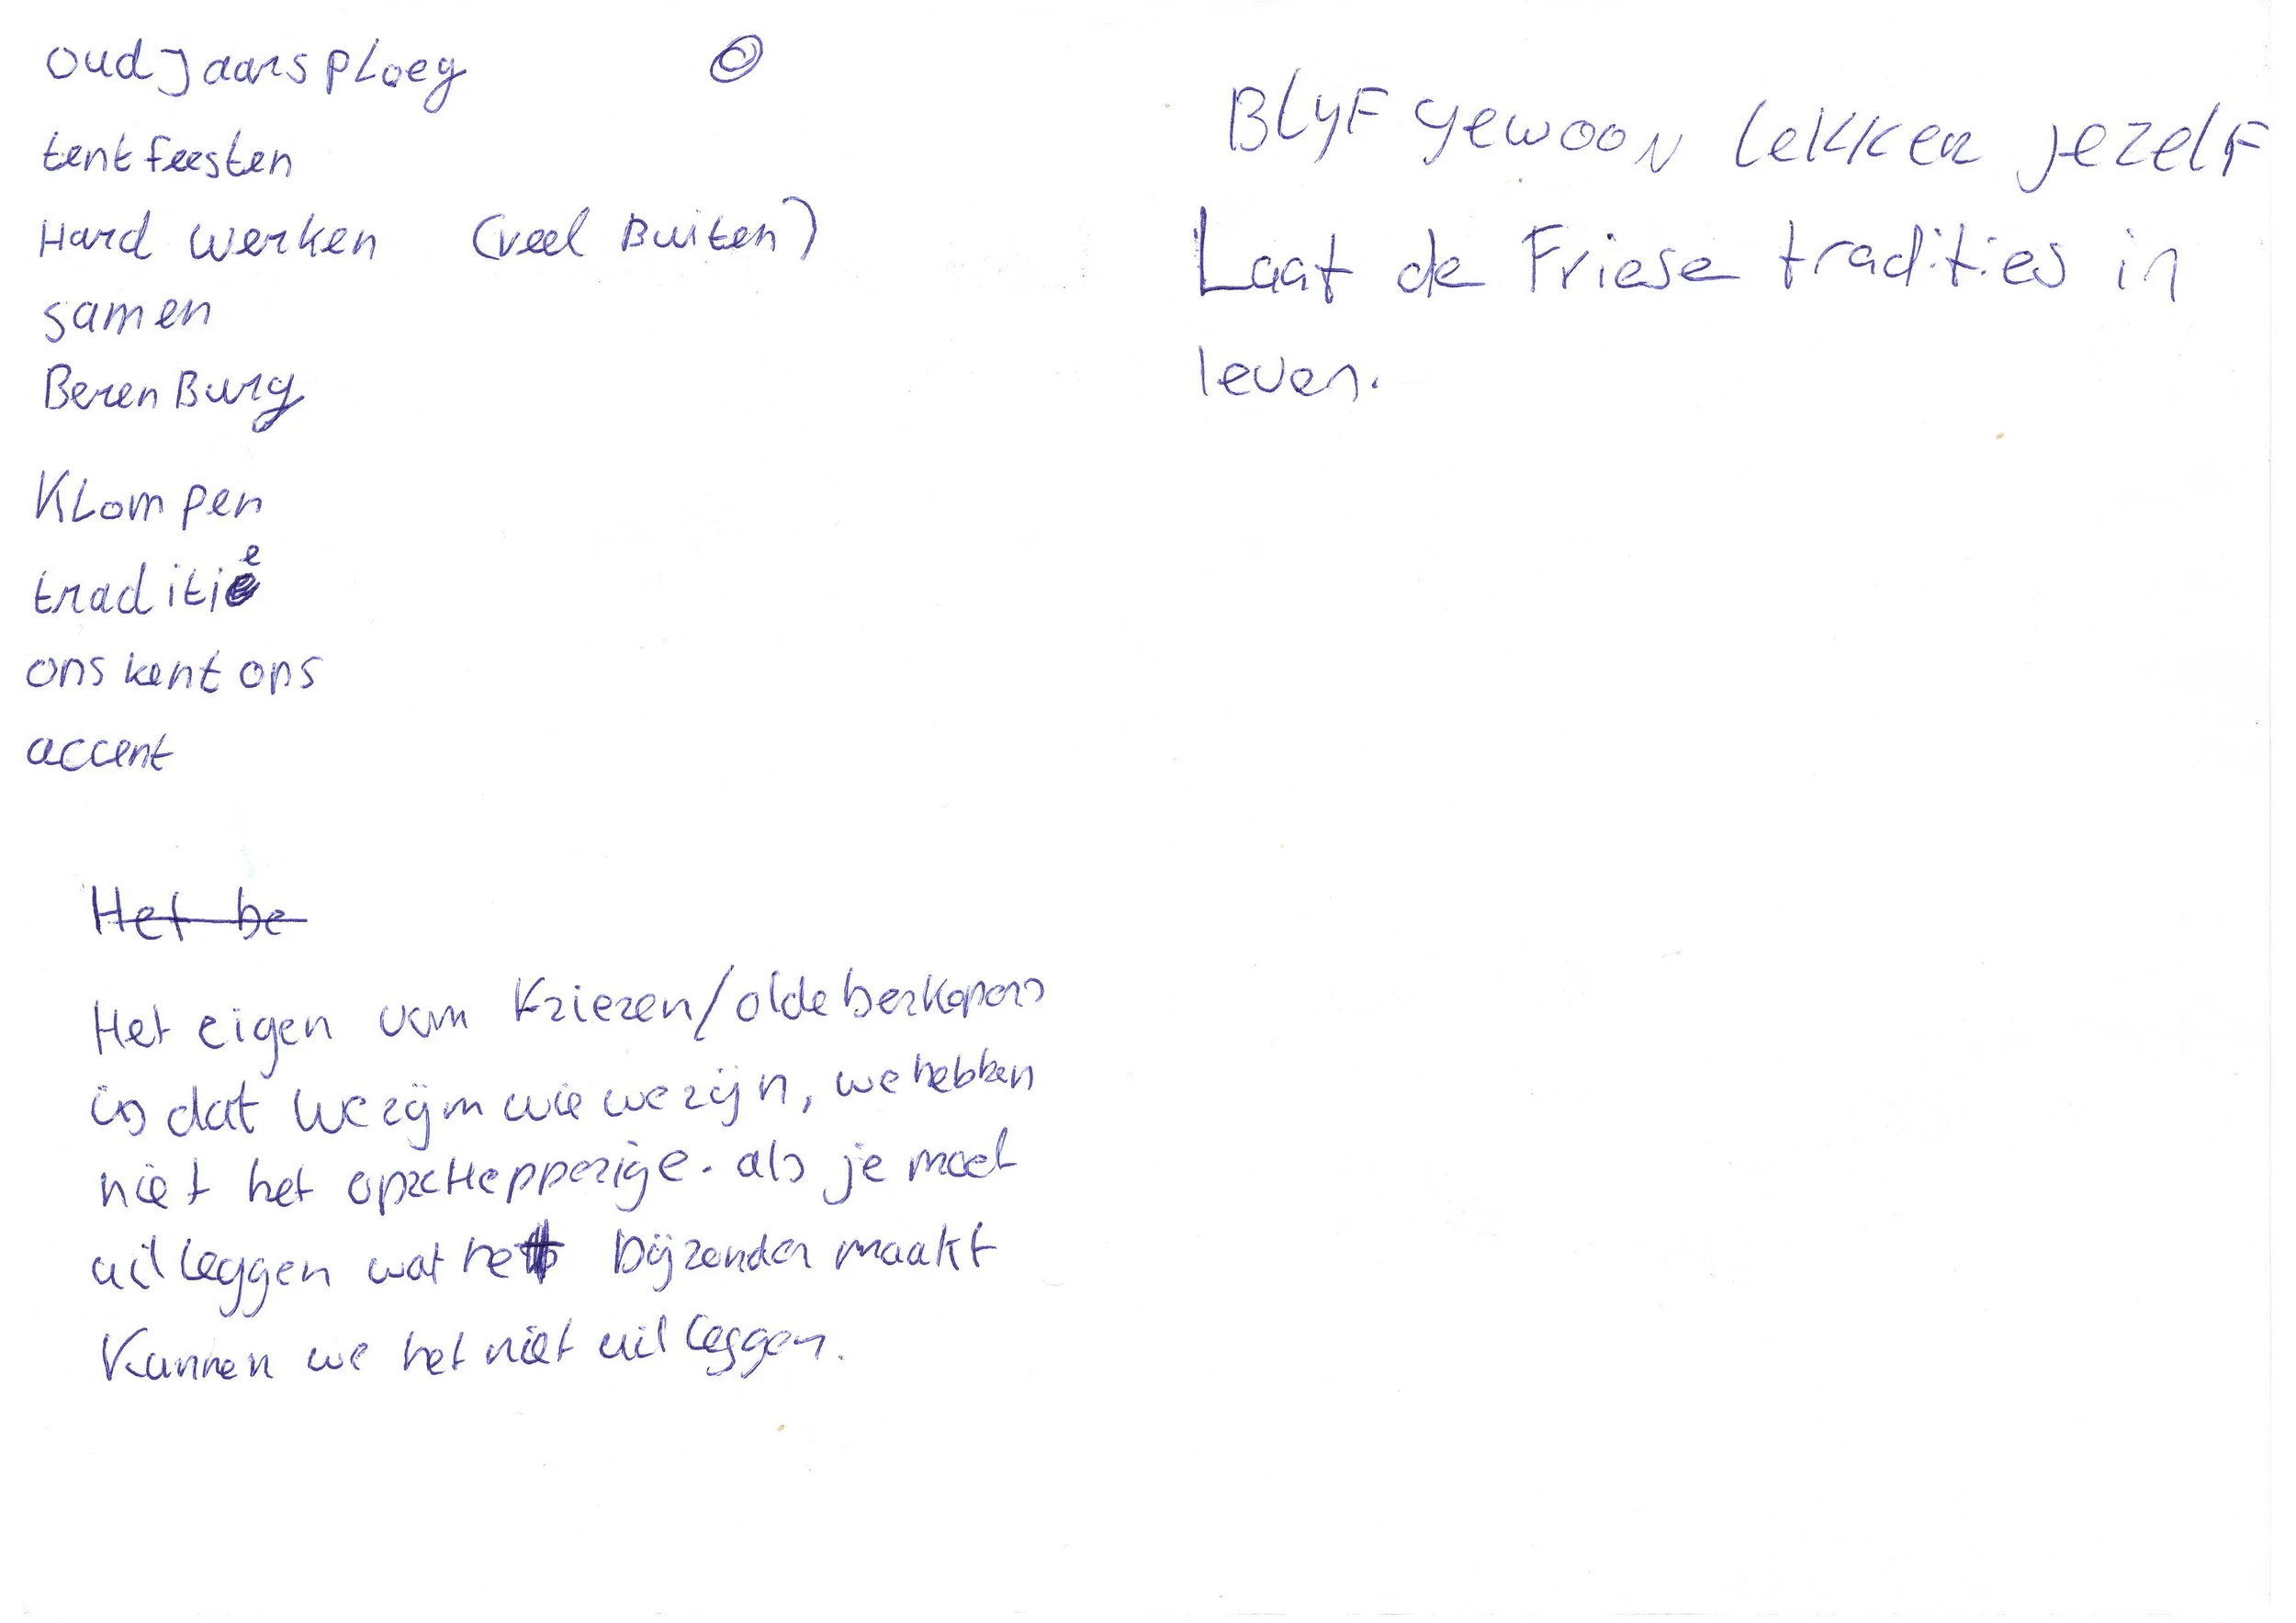 oudjaarsploeg
tentfeesten
Hard werken (veel Buiten)
samen
BerenBurg
Klompen
traditie
ons kent ons
accent
Het be
Het eigen van Friezen/oldeberkopers
is dat we zijn wie we zijn, we hebben
niet het opscHepperige. als je moet
uitleggen wat het bijzonder maakt
Kunnen we het niet uitleggen.
BlyF gewoon lekker jezelF
Laat de Friese tradities in
leven.